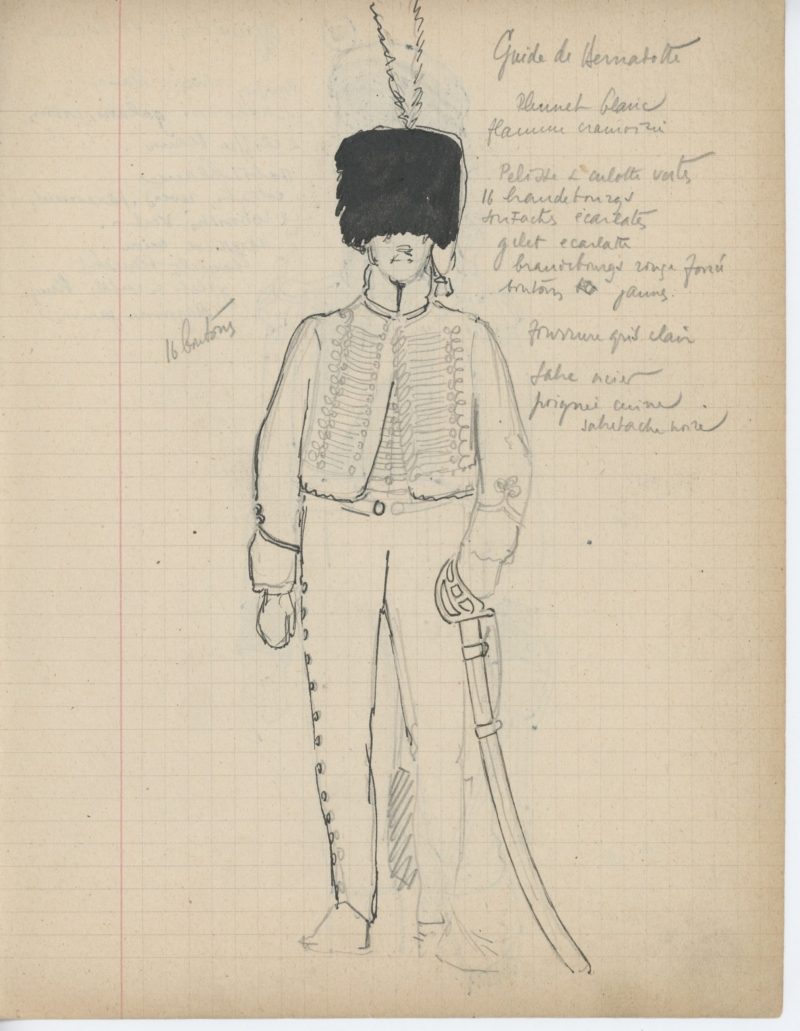 Guide de Bernadotte
Plumet blanc
flamme cramoisi
Pelisse & culotte vertes
16 brandebourgs
soutaches écarlates
gilet ecarlatte
brandebourgs rouge foncé
boutons jaunes.
fourrure gris clair
Sabre acier
poignée cuivre
sabretache noire
16 boutons